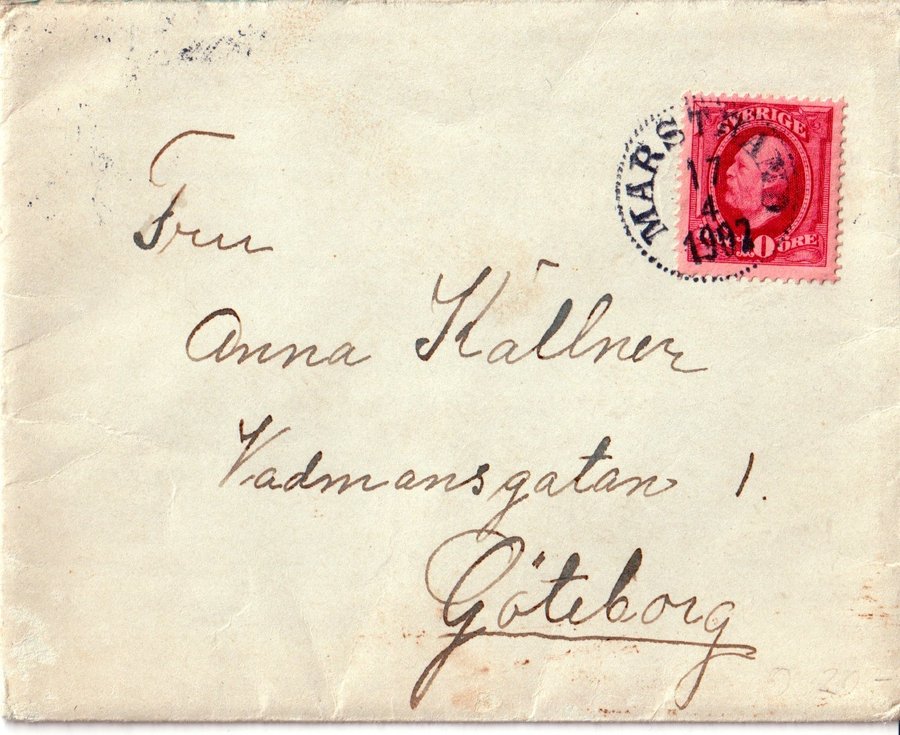 MARSTRAND
17
4
1902
SVERIGE
10 ÖRE
Fru
Anna Källner
Vadmansgatan 1.
Göteborg